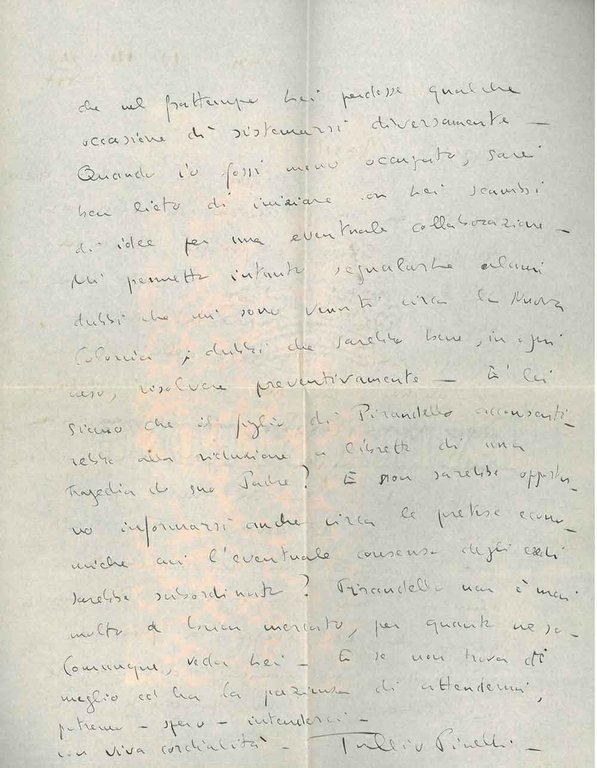 che nel frattempo Lei perdesse qualche
occasione di sistemarsi diversamente –
Quando io fossi meno occupato, sarei
ben lieto di iniziare con Lei scambi
di idee per una eventuale collaborazione –
Mi permetto intanto segnalarLe alcuni
dubbi che mi sono venuti circa la Nuova
Colonia ; dubbi che sarebbe bene, in ogni
caso, risolvere preventivamente – È Lei
sicuro che il figlio di Pirandello acconsenti-
rebbe alla riduzione a libretto di una
tragedia di suo Padre? E non sarebbe opportu-
no informarsi anche circa le pretese econo-
miche cui l'eventuale consenso degli eredi
sarebbe subordinato? Pirandello non è mai
molto a buon mercato, per quanto ne so –
Comunque, veda Lei – E se non trova di
meglio ed ha la pazienza di attendermi,
potremo – spero – intenderci –
con viva cordialità – Tullio Pinelli –